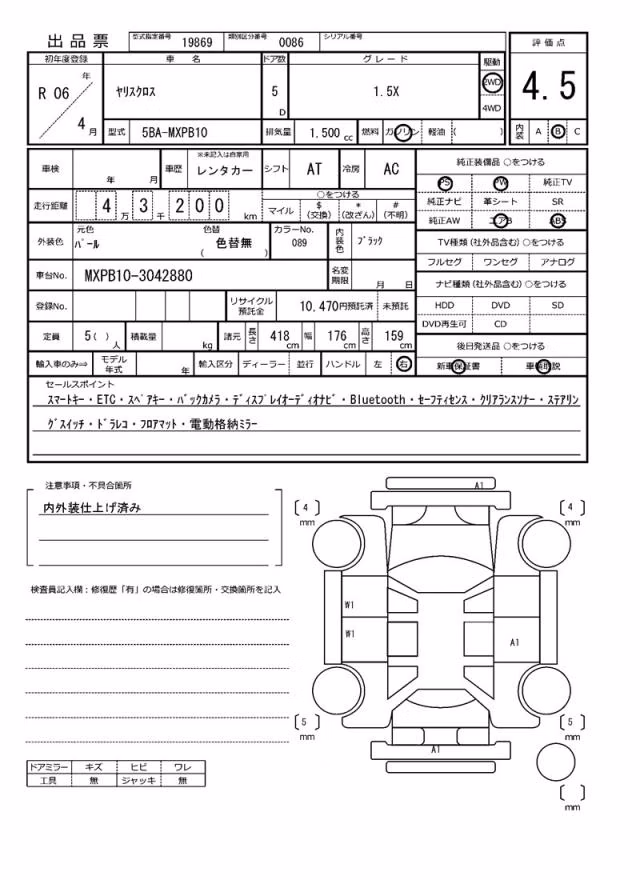 出品票 型式指定番号 19869 類別区分番号 0086 シリアル番号
初年度登録 車名 ドア数 グレード 駆動 評価点
R 06 年 4 月 ヤリスクロス 5 D 1.5X 2WD 4WD 4.5
型式 5BA-MXPB10 排気量 1.500 cc 燃料 ガソリン 軽油 ( ) 内装 A B C
車検 年 月 車歴 ※未記入は自家用 レンタカー シフト AT 冷房 AC
走行距離 4 万 3 千 2 0 0 km ○をつける
マイル $ (交換) * (改ざん) # (不明)
外装色 元色 パール 色替 色替無 ( ) カラーNo. 089 内装色 ブラック
車台No. MXPB10-3042880 名変期限 月 日
登録No. リサイクル預託金 10.470円預託済 未預託
定員 5( ) 人 積載量 kg 諸元 長さ 418 cm 幅 176 cm 高さ 159 cm
輸入車のみ⇒ モデル年式 年 輸入区分 ディーラー 並行 ハンドル 左 右
純正装備品 ○をつける
PS PW 純正TV
純正ナビ 革シート SR
純正AW エアB ABS
TV種類(社外品含む)○をつける
フルセグ ワンセグ アナログ
ナビ種類(社外品含む)○をつける
HDD DVD SD
DVD再生可 CD
後日発送品 ○をつける
新車保証書 車輌取説
セールスポイント
スマートキー・ETC・スペアキー・バックカメラ・ディスプレイオーディオナビ・Bluetooth・セーフティセンス・クリアランスソナー・ステアリン
グスイッチ・ドラレコ・フロアマット・電動格納ミラー
注意事項・不具合箇所
内外装仕上げ済み
検査員記入欄：修復歴「有」の場合は修復箇所・交換箇所を記入
A1
4 mm 4 mm
W1
W1 A1
5 mm 5 mm
A1
mm
ドアミラー キズ ヒビ ワレ
工具 無 ジャッキ 無